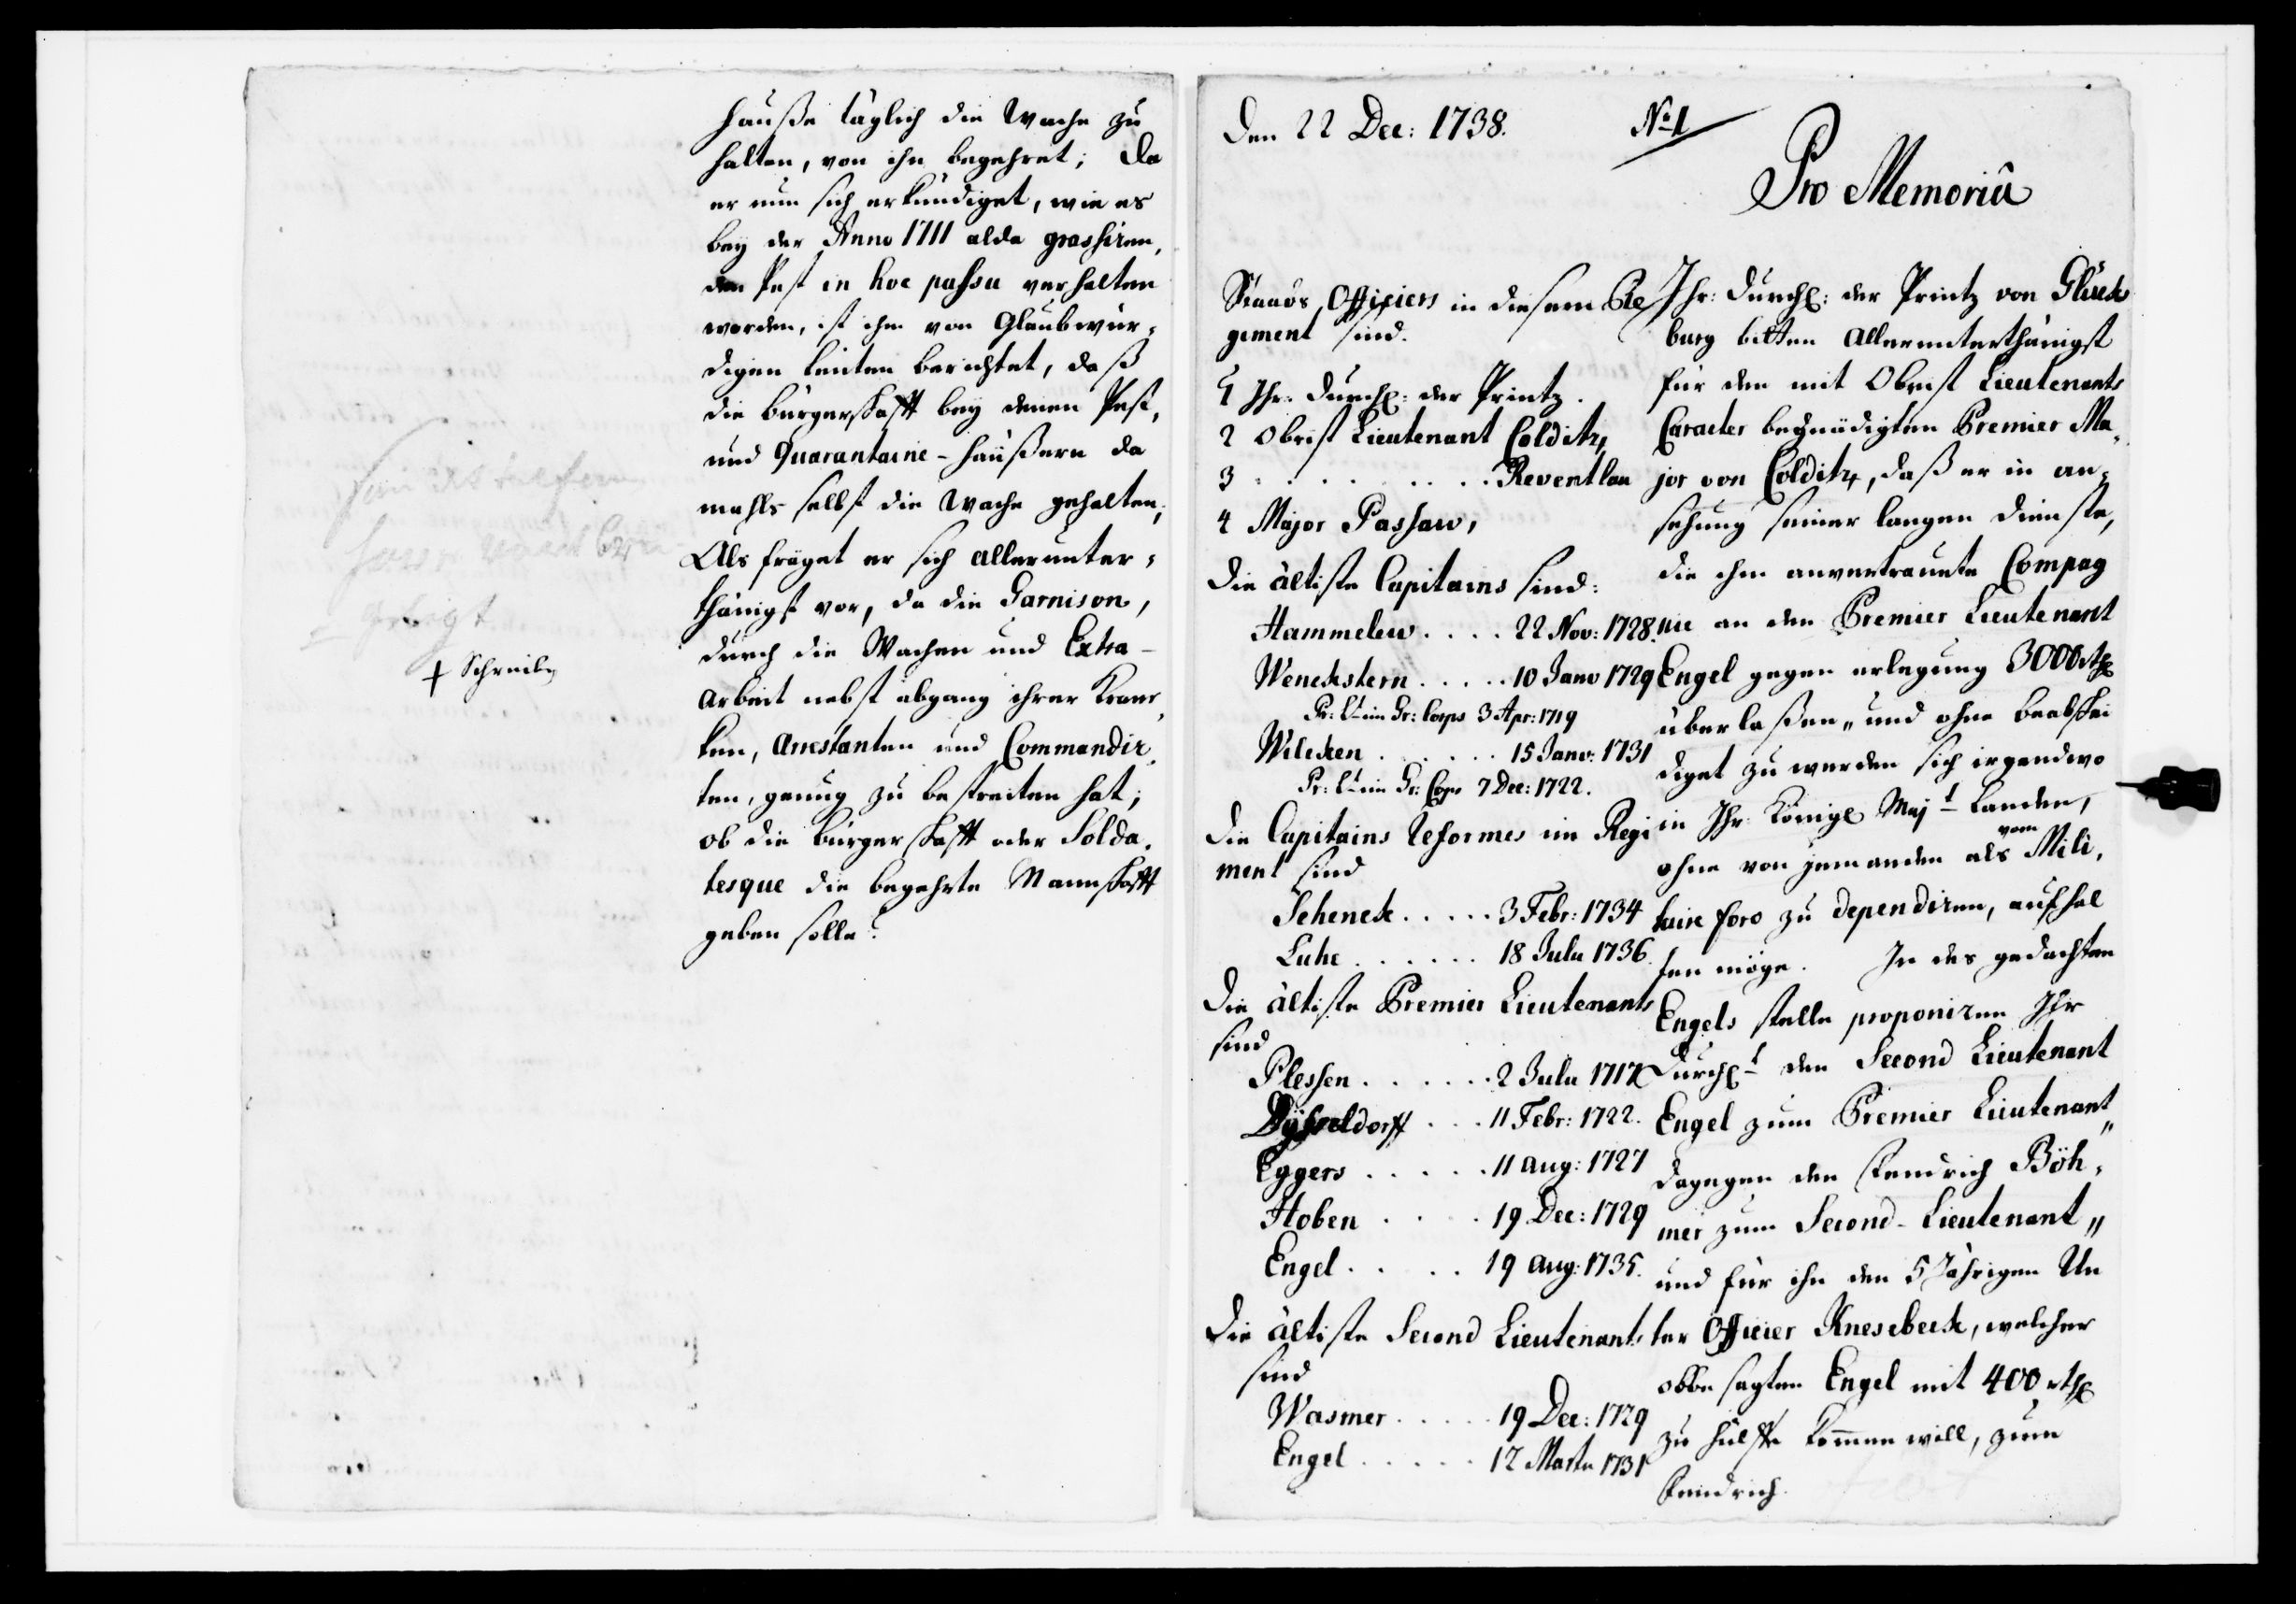 hauße täglich die Wache zu
halten, von ihn begehret; Da
er nun sich erkundiget, wie es
bey der Anno 1711 alda grassiren,
den Pest in hoc passu verhalten
worden, ist ihm von Glaubwür-
digen leuten berichtet, daß
die bürgerschafft bey denen Pest,
und Quarantaine-häußern da
mahls selbst die Wache gehalten;
Als fräget er sich allerunter-
thänigst vor, da die Garnison,
durch die Wachen und Extra-
arbeit nebst abgang ihrer Kran-
ken, Arrestanten und Commandir,
ten, genug zu bestreiten hat;
ob die bürgerschafft oder Solda,
tesque die begehrte Mannschafft
geben solle?
† Schreiben
Den 22 Dec: 1738.
No 1
Pro Memoriâ
Staabs Officiers in diesem Re
giment sind.
1 Ihr: Durchl: der Printz.
2 Obrist Lieutenant Colditz,
3 . . . . . . . . Reventlau
4 Major Passaw,
Die ältiste Capitains sind:
Hammelew . . . . 22 Nov: 1728.
Wenckstern . . . . . 10 Janv 1729
Pr: Lt im Gr: Corps 3 Apr: 1719
Wilcken . . . . . . 15 Janv: 1731
Pr: Lt im Gr: Corps 7 Dec: 1722.
Die Capitains Reformes im Regi
ment sind
Schenck . . . . . 3 Febr: 1734
Luhe . . . . . . 18 July 1736.
Die ältiste Premier Lieutenants
sind
Plessen . . . . . . 2 July 1717
Dysseldorff . . . 11 Febr: 1722.
Eggers . . . . . 11 Aug: 1727
Hoben . . . . 19 Dec: 1729
Engel . . . . 19 Aug: 1735.
Die ältiste Second Lieutenants
sind
Wasmer . . . . . 19 Dec: 1729
Engel . . . . . 12 Marty 1731
Ihr: Durchl: der Printz von Glücks
burg bitten Allerunterthänigst
für den mit Obrist Lieutenants
Caracter begnädigten Premier Ma,
jor von Colditz, daß er in an-
sehung seiner langen dienste,
die ihm anvertrauete Compag
nie an den Premier Lieutenant
Engel gegen erlegung 3000 rthl
überlaßen, und ohne beabschei
diget zu werden sich irgendwo
in Ihr Königl Majt Landen,
ohne von jemanden als vom Mili,
taire foro zu dependiren, aufhal
ten möge. In des gedachten
Engels stelle proponiren Ihr
Durchlt den Second Lieutenant
Engel zum Premier Lieutenant,,
dagegen den Fendrich Böh-
mer zum Second-Lieutenant,,
und für ihn den 5 Jährigen Un
ter Officier Knesebeck, welcher
obbesagten Engel mit 400 rthl
zu hülffe kommen will, zum
Fendrich.